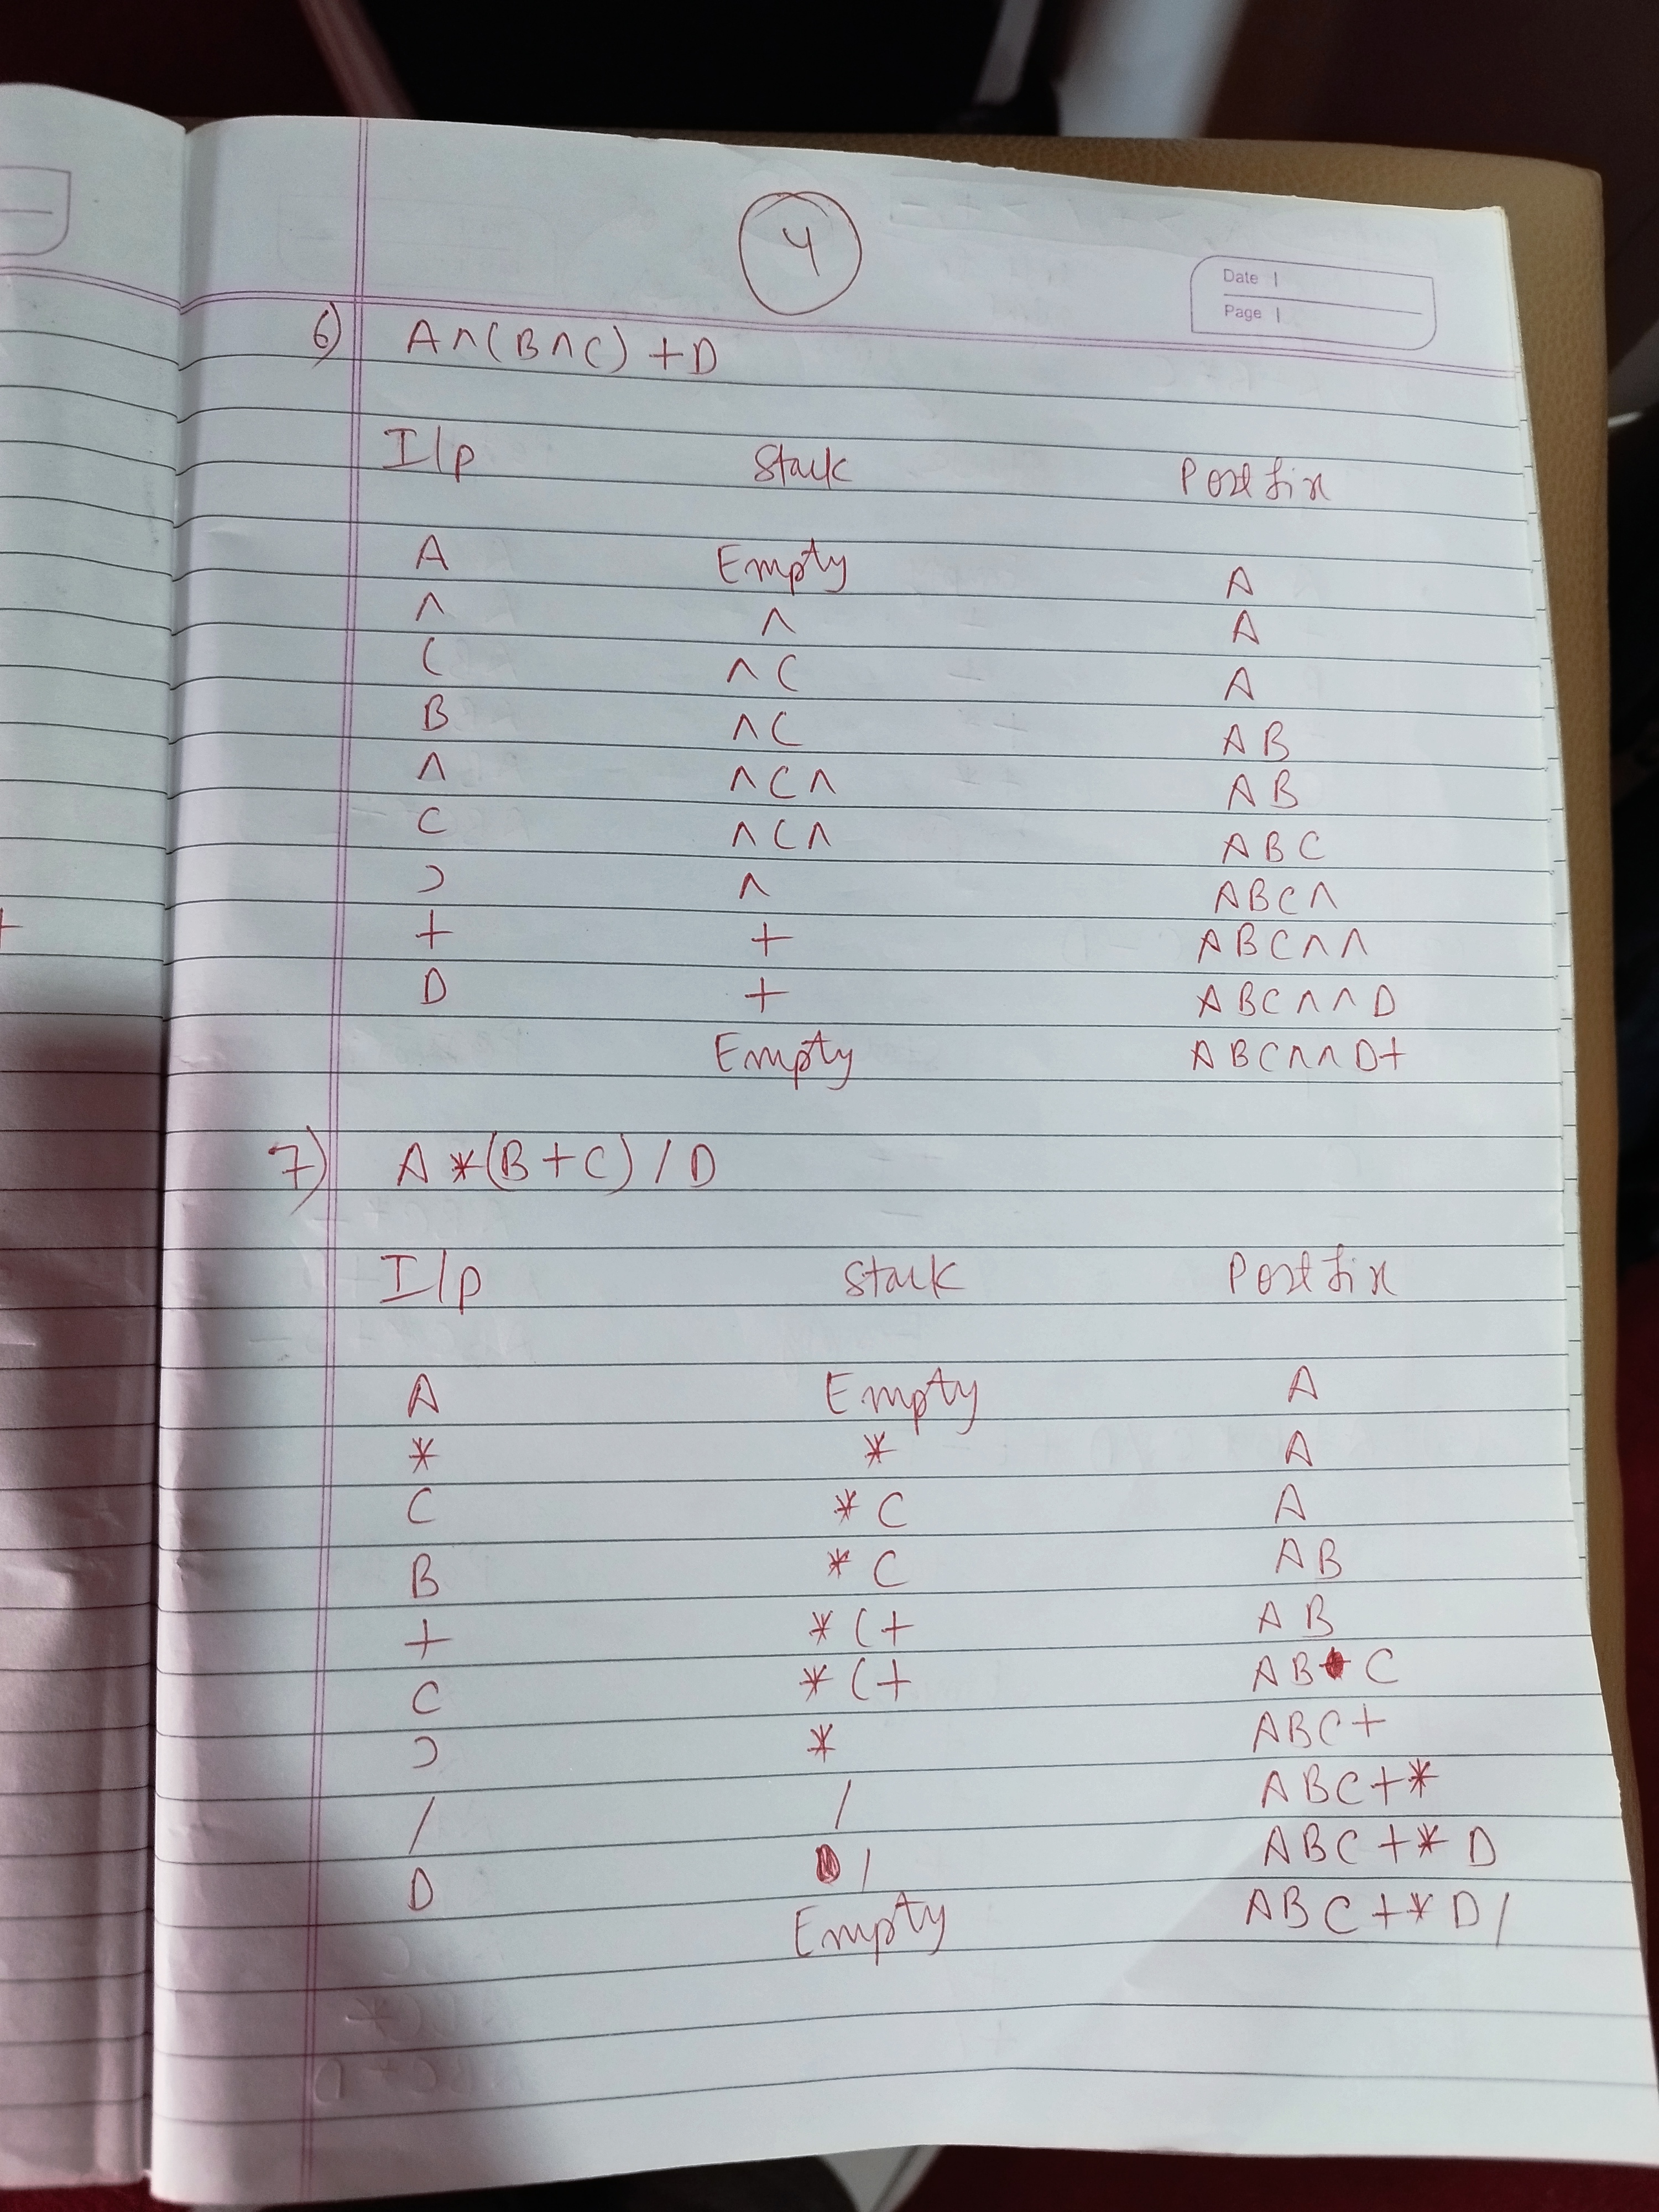 4
Date
Page
6) A^(B^C) +D
I/p Stack Postfix
A Empty A
^ ^ A
( ^ ( A
B ^ ( A B
^ ^ ( ^ A B
C ^ ( ^ A B C
) ^ A B C ^
+ + A B C ^ ^
D + A B C ^ ^ D
Empty A B C ^ ^ D+
7) A *(B+C) / D
I/p Stack Postfix
A Empty A
* * A
( * ( A
B * ( A B
+ * ( + A B
C * ( + A B C
) * A B C +
/ / A B C + *
D / A B C + * D
Empty A B C + * D /
+